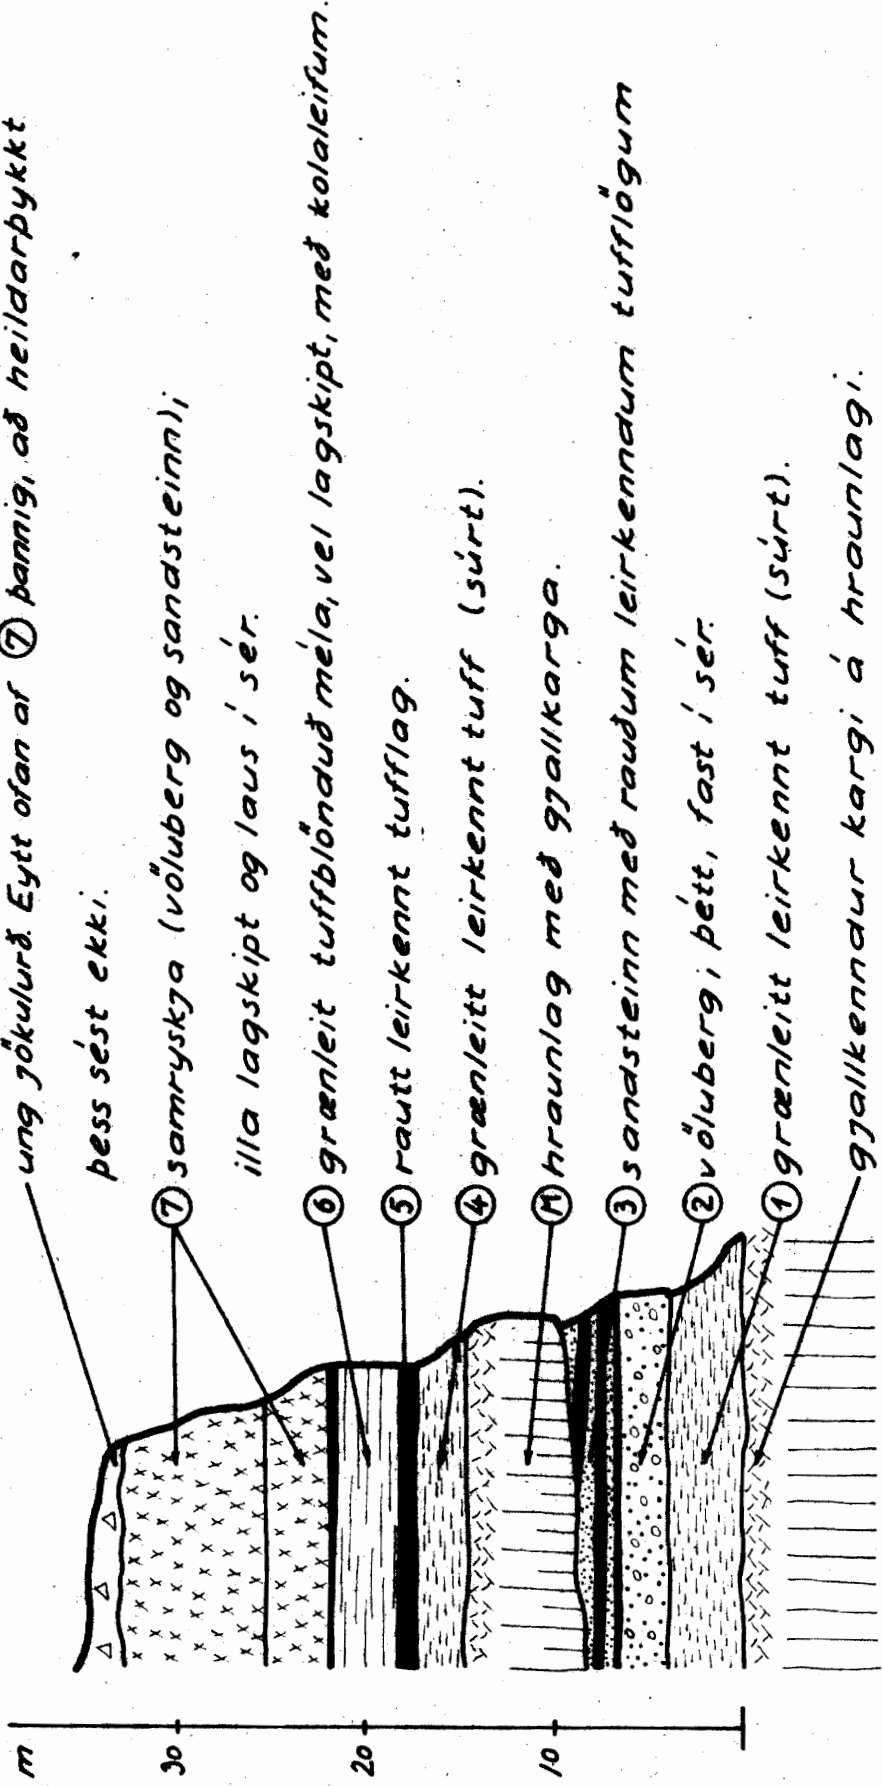 ung jökulurð. Eytt ofan af ⑦ þannig, að heildarþykkt
þess sést ekki.
⑦ samryskja (völuberg og sandsteinn);
illa lagskipt og laus í sér.
⑥ grænleit tuffblönduð méla, vel lagskipt, með kolaleifum.
⑤ rautt leirkennt tufflag.
④ grænleitt leirkennt tuff (súrt).
Ⓜ hraunlag með gjallkarga.
③ sandsteinn með rauðum leirkenndum tufflögum
② völuberg; þétt, fast í sér.
① grænleitt leirkennt tuff (súrt).
gjallkenndur kargi á hraunlagi.
m
30
20
10